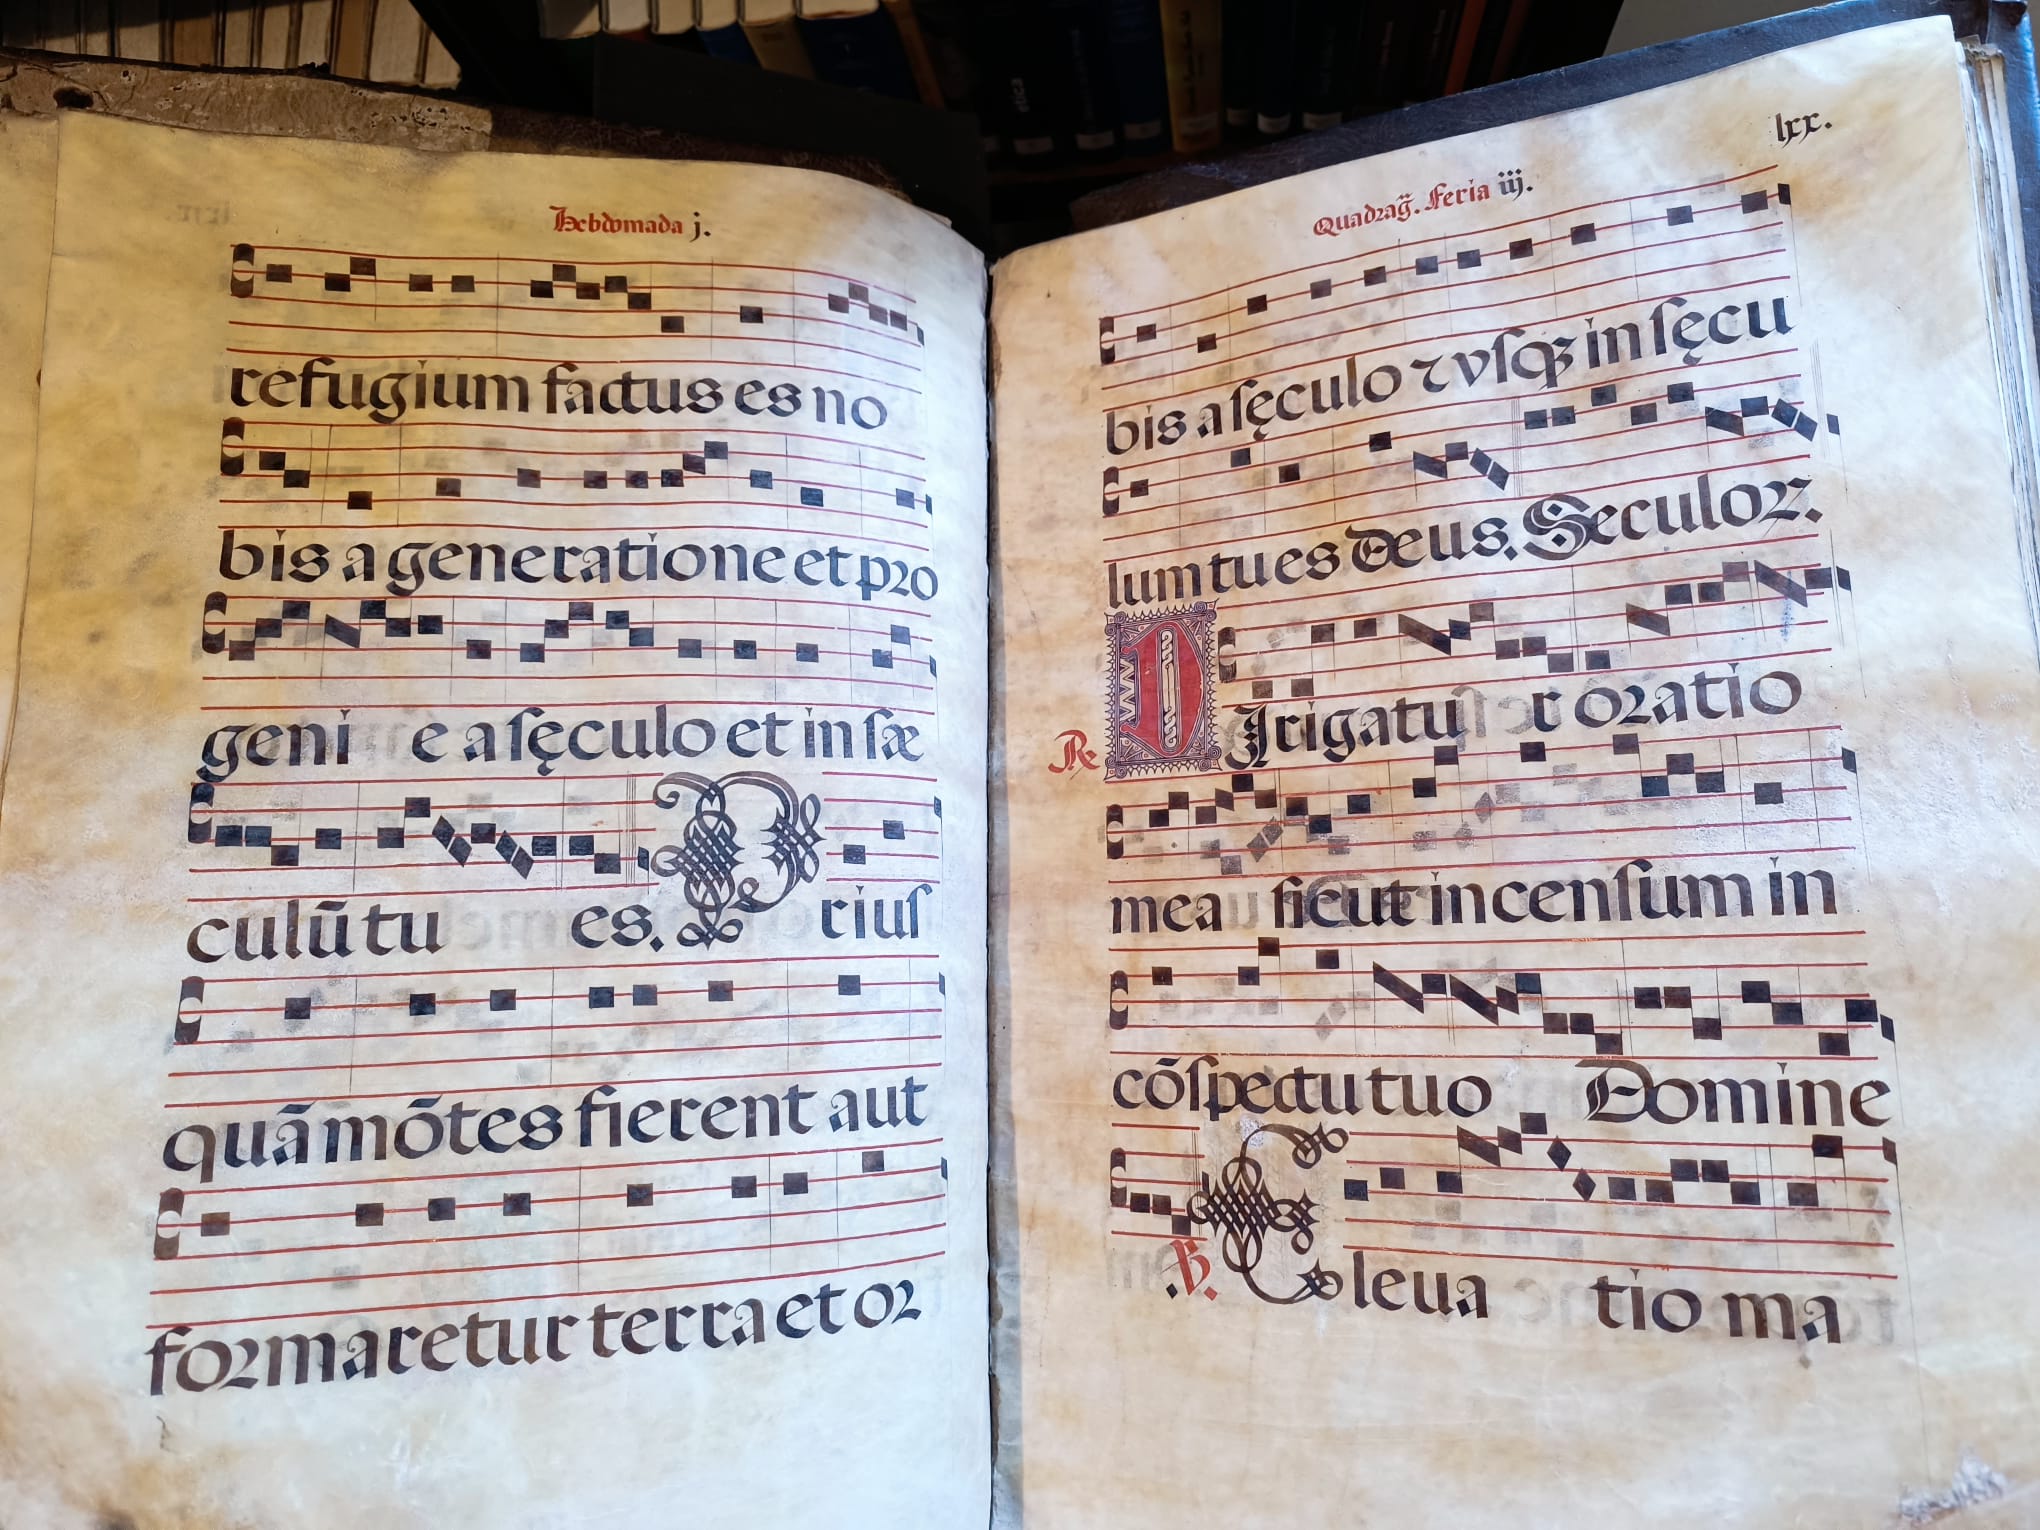 Hebdomada j.
refugium factus es no
bis a generatione et pro
geni e a ſęculo et in ſæ
culū tu es. Priuſ
quā mōtes fierent aut
formaretur terra et or
Quadrag̃. Feria iij.
lxx.
bis a ſęculo ⁊ vſqꝫ in ſęcu
lum tu es Deus. Seculoꝝ.
℟ DIrigatur oratio
mea ſicut in cenſum in
cōſpectu tuo Domine
.℣. Eleua tio ma